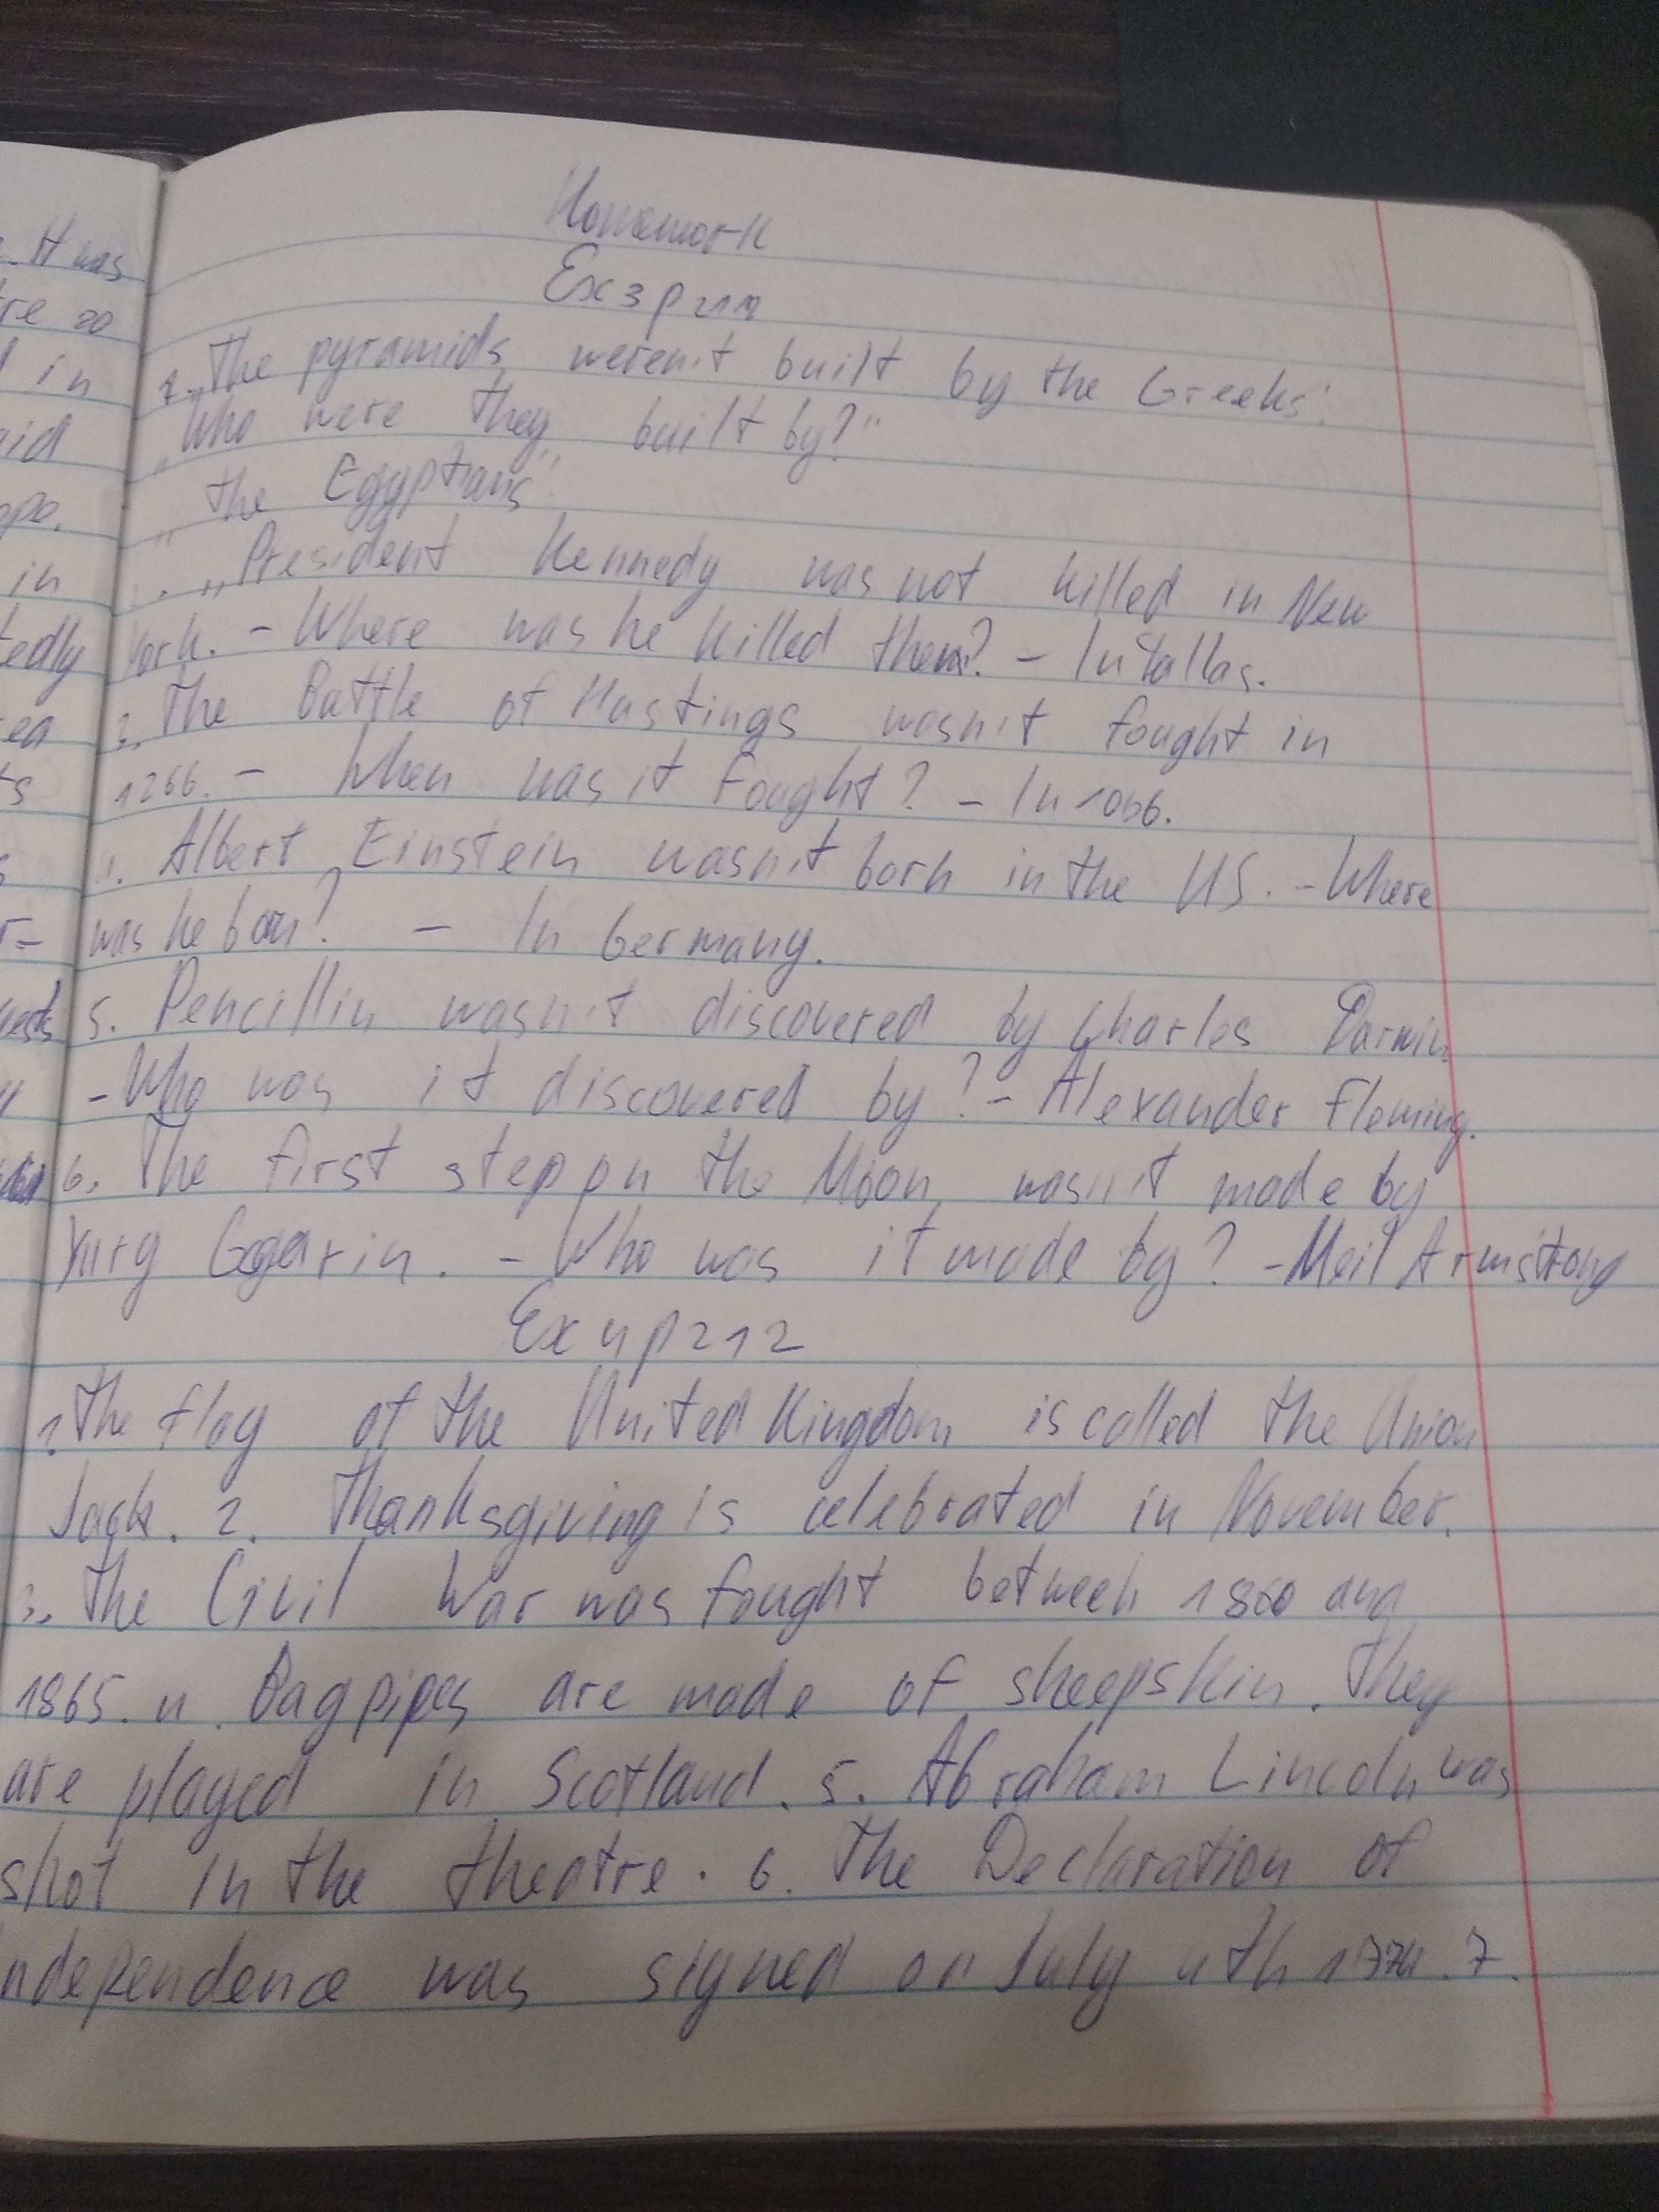 Homework
Ex 3 p 212
1. „The pyramids weren't built by the Greeks".
„Who were they built by?"
„the Egyptians".
„President Kennedy was not killed in New
York. - Where was he killed then? - In Dallas.
3. The Battle of Hastings wasn't fought in
1266. - When was it fought? - In 1066.
Albert Einstein wasn't born in the US. - Where
was he born? - In Germany.
5. Pencillin wasn't discovered by Charles Darwin.
- Who was it discovered by? - Alexander Fleming.
6. The first step on the Moon wasn't made by
Yury Gagarin. - Who was it made by? - Neil Armstrong
Ex 4 p 212
1. The flag of the United Kingdom is called the Union
Jack. 2. Thanksgiving is celebrated in November.
3. The Civil War was fought between 1860 and
1865. 4. Bagpipes are made of sheepskin. They
are played in Scotland. 5. Abraham Lincoln was
shot in the theatre. 6. The Declaration of
ndependence was signed on July 4th 7.